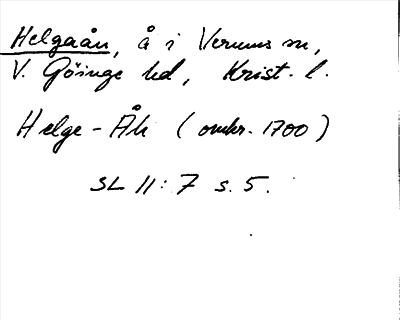 Helgaån, å i Verums sn,
V. Göinge hd, Krist. l.
Helge-Åh (omkr. 1700)
SL 11:7 s. 5.